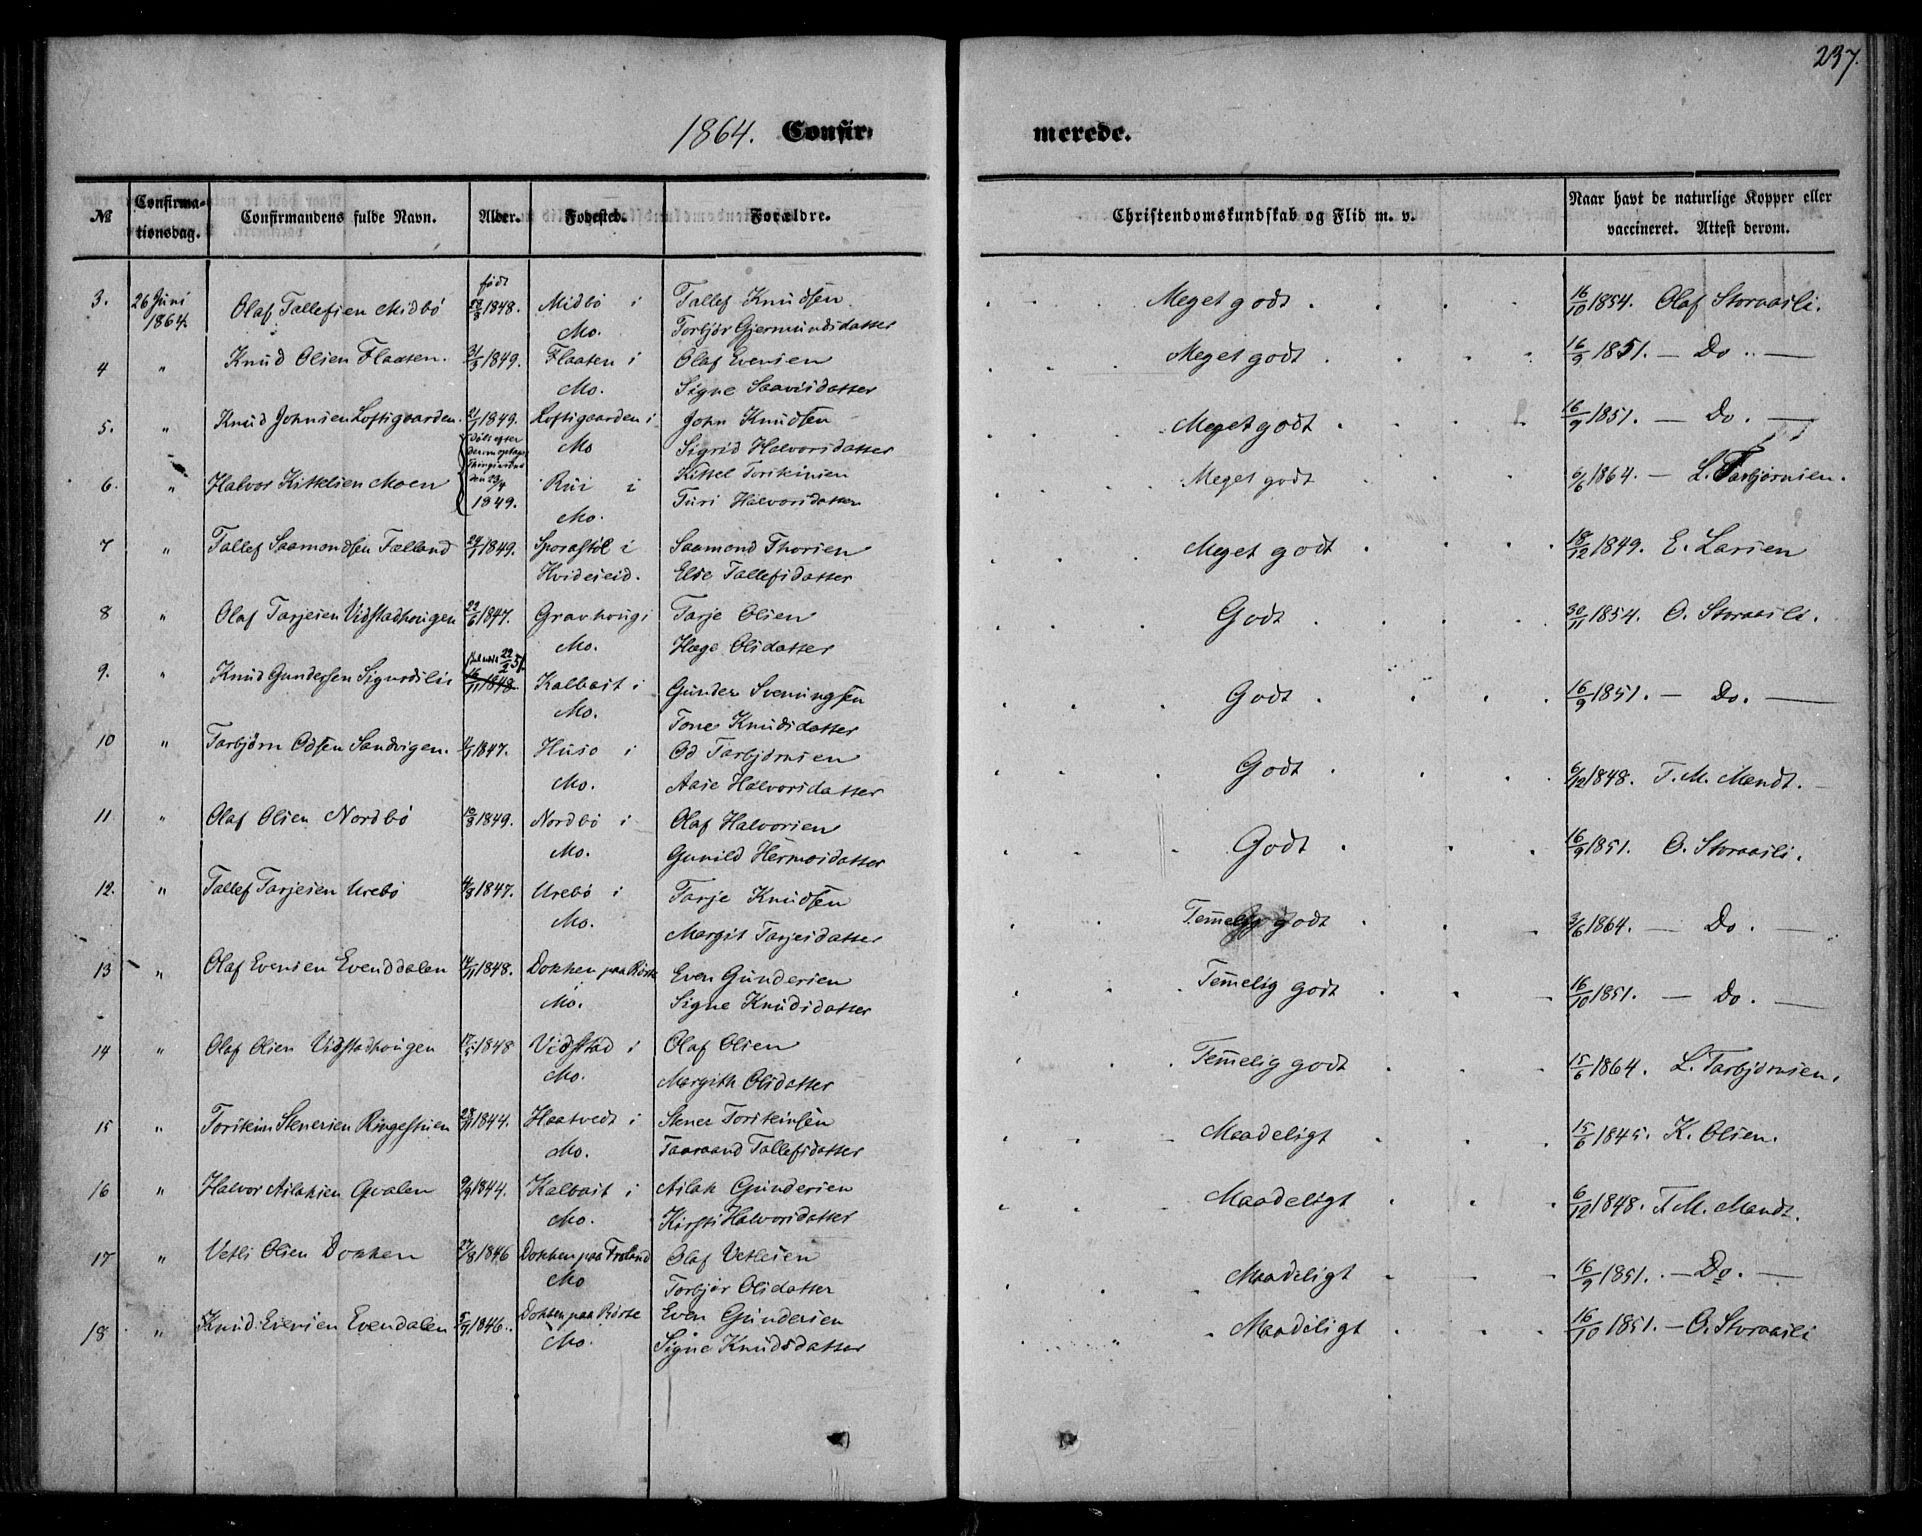 237.
1864. Confir- merede.
№ Confirma-tionsdag. Confirmandens fulde Navn. Alder. Fødested. Forældre. Christendomskundskab og Flid m. v. Naar havt de naturlige Kopper eller vaccineret. Attest derom.
3. 26 Juni 1864. Olaf Tallefsen Midbö født 1848. Midbö i Mo. Tallef Knudsen Torbjör Gjermundsdatter Meget godt 16/10 1854. Olaf Storaasli.
4 " Knud Olsen Flaaten. 1849. Flaaten i Mo. Olaf Evensen Signe Saavesdatter Meget godt 16/9 1851. — Do. —
5. " Knud Johnsen Loftsgaarden. 1849. Loftsgaarden i Mo John Knudsen Sigrid Halvorsdatter Meget godt 16/9 1851. — Do. —
6. " Halvor Kittelsen Moen 1849. Rui i Mo. Kittel Torskinsen Turi Halvorsdatter Meget godt 6/6 1864. — L. Tarbjörnsen.
7 " Tallef Saamondsen Fælland 1849. Sporastöl i Hvideseid. Saamond Thorsen Else Tallefsdatter Meget godt 18/12 1849. E. Larsen
8 " Olaf Tarjesen Vidstadhougen 22/6 1847. Gravhoug i Mo. Tarje Olsen Hæge Olsdatter Godt 30/11 1854. O. Storaasli.
9. " Knud Gundersen Sigurdslii 22/2 51. 16/11 1848. Kalbast i Mo. Gunder Sveningsen Tone Knudsdatter Godt 16/9 1851. — Do. —
10 " Tarbjörn Odsen Sandvigen. 1847. Huso i Mo. Od Tarbjörnsen Aase Halvorsdatter Godt 6/12 1848. T. M. Mandt.
11 " Olaf Olsen Nordbö 1849. Nordbö i Mo. Olaf Halvorsen Gunild Hermosdatter Godt 16/9 1851. O. Storaasli.
12. " Tallef Tarjesen Urebö 4/3 1847. Urebö i Mo. Tarje Knudsen Margit Tarjesdatter Temmelig godt 3/6 1864. — Do. —
13 " Olaf Evensen Evenddalen 14/11 1848. Dokken paa Börte Mo. Even Gundersen Signe Knudsdatter Temmelig godt 16/10 1851. — Do. —
14 " Olaf Olsen Vidstadhougen 17/5 1848 Vidstad i Mo. Olaf Olsen Margith Olsdatter Temmelig godt 15/6 1864. L. Tarbjörnsen.
15 " Torskin Stenersen Ringestuen 28/11 1844. Haatvedt i Mo. Stener Torskinsen Taaraand Tallefsdatter Maadeligt 15/6 1845. K. Olsen.
16 " Halvor Aslaksen Qvalen 1844. Kalbast i Mo. Aslak Gundersen Kirsti Halvorsdatter Maadeligt 6/12 1848. T. M. Mandt.
17 " Vetli Olsen Dokken 27/8 1846 Dokken paa Froland Mo Olaf Vetlesen Torbjör Olsdatter Maadeligt 16/9 1851. — Do. —
18 " Knud Evensen Evendalen 1846. Dokken paa Börte Mo. Even Gundersen Signe Knudsdatter Maadeligt 16/10 1851. — O. Storaasli